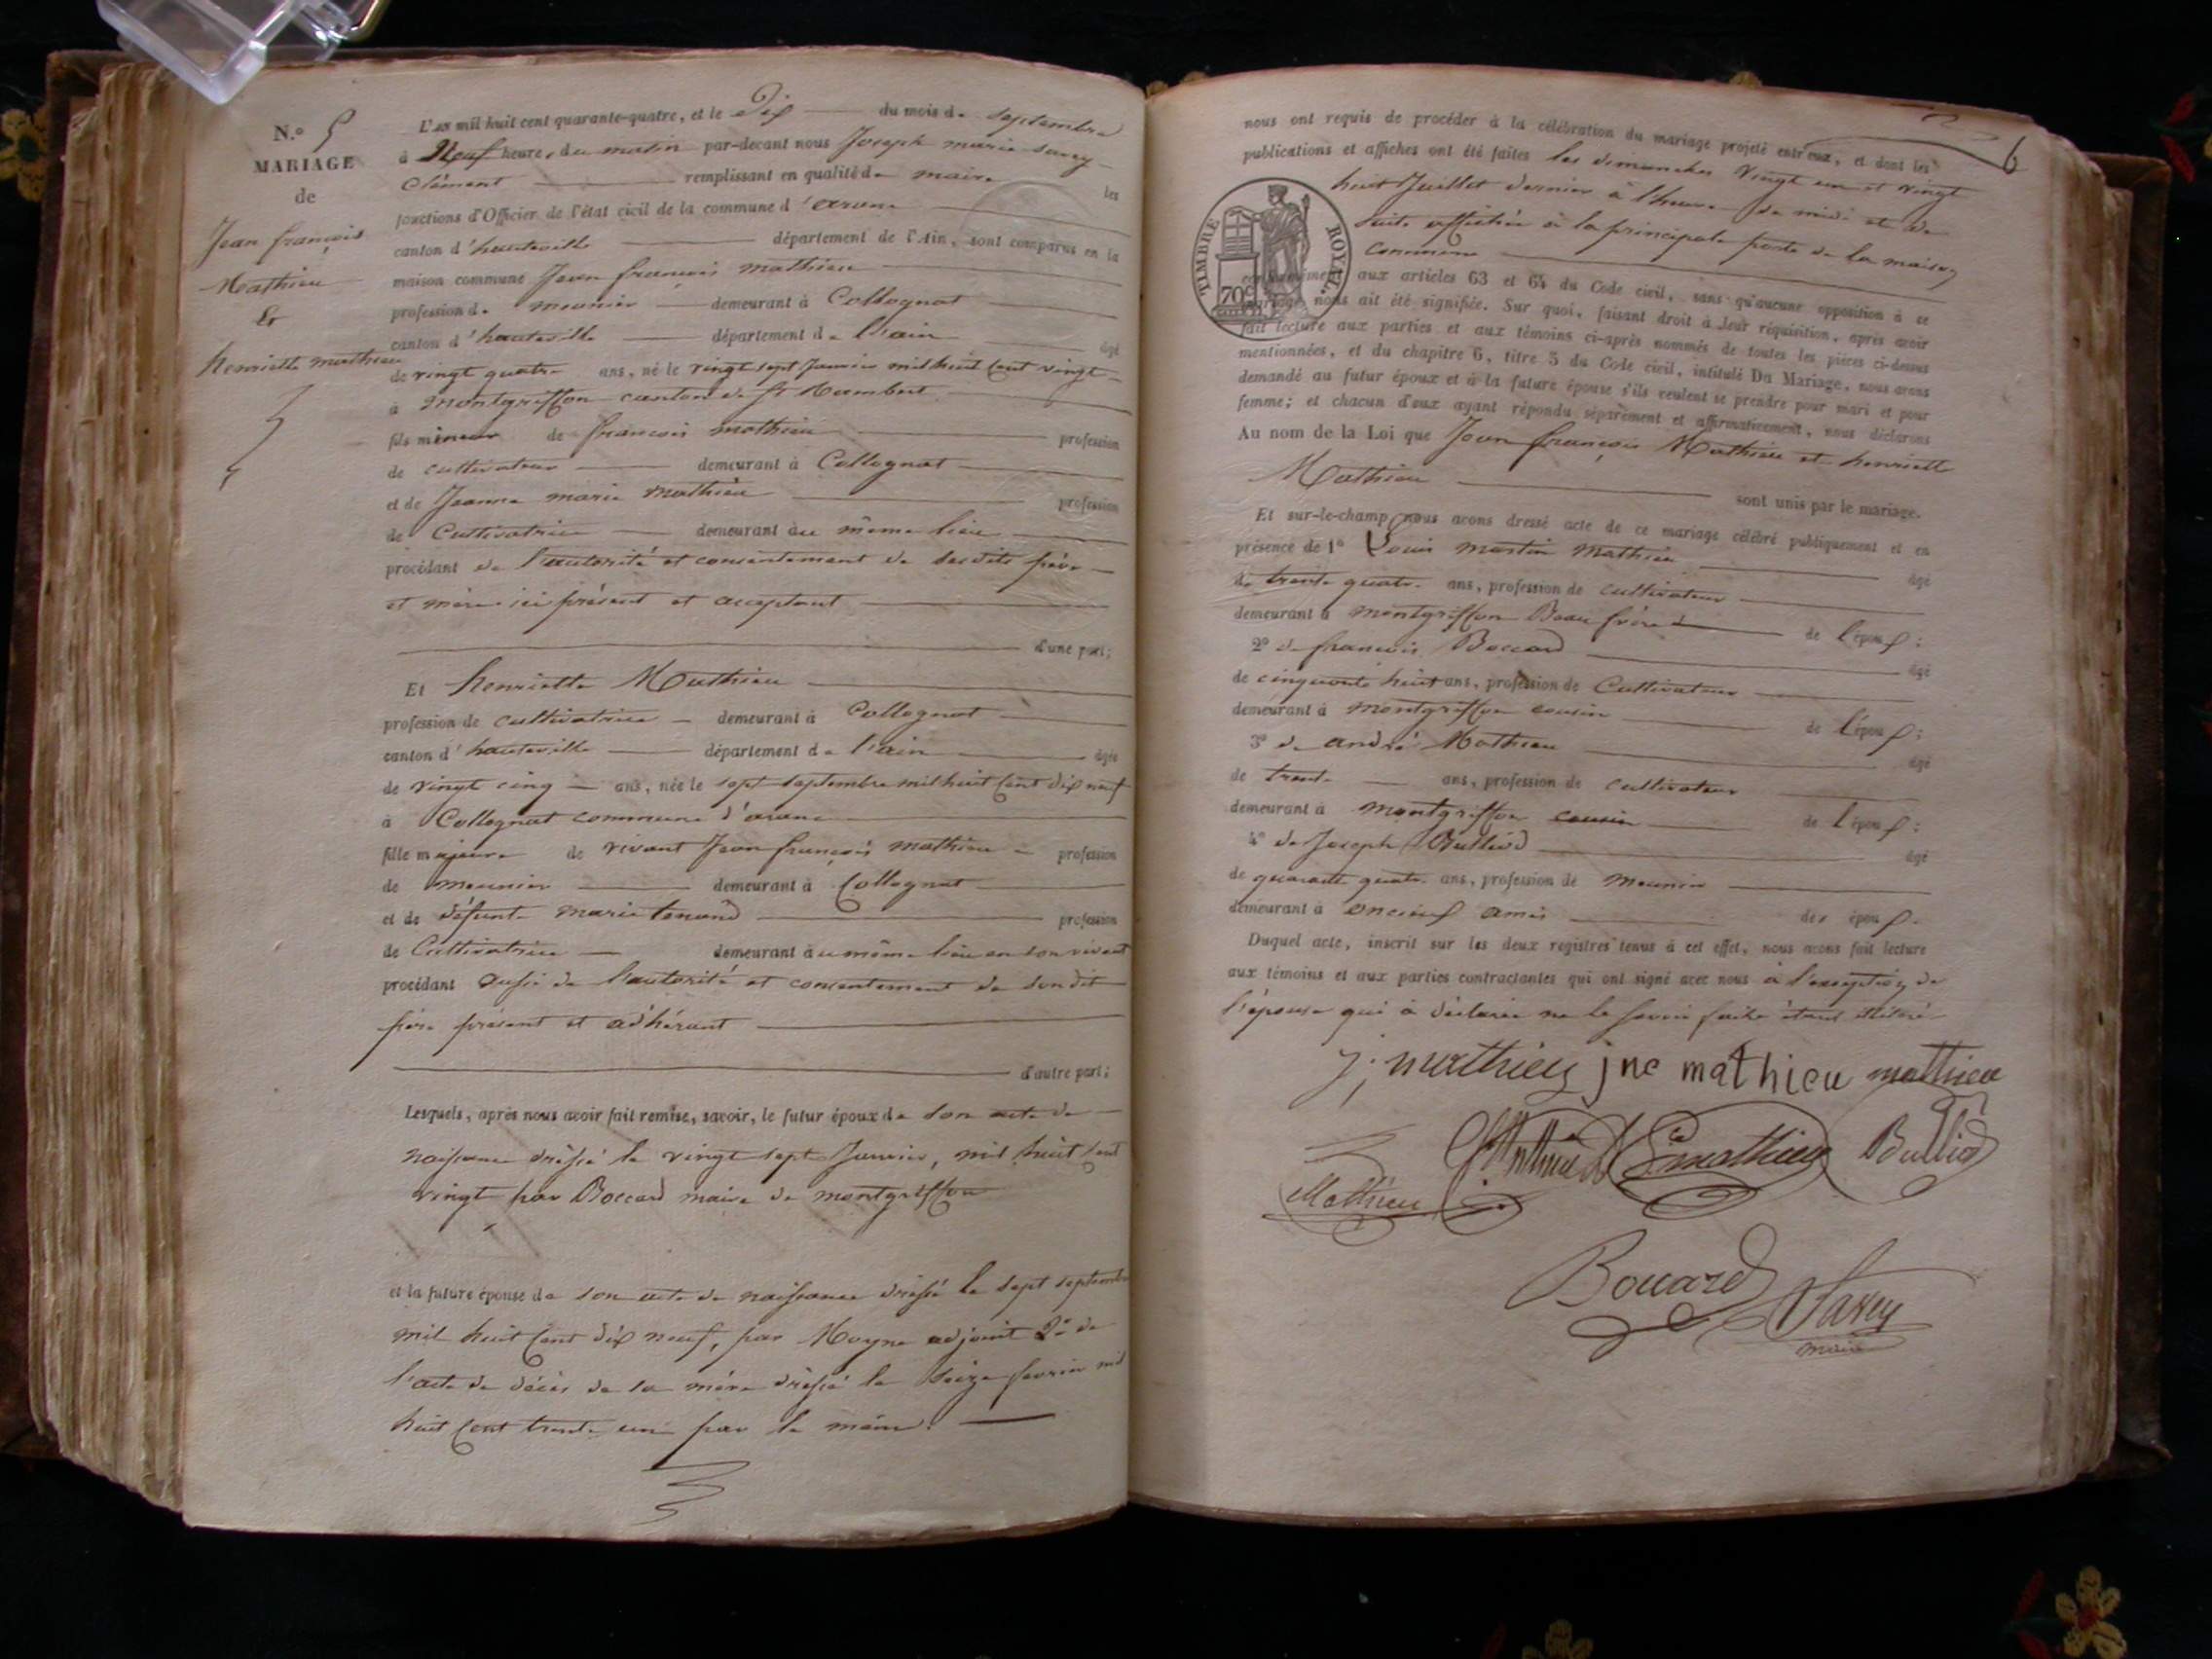 N.° 5
MARIAGE
de
Jean françois
Mathieu
Et
henriette mathieu
L'an mil huit cent quarante-quatre, et le Dix du mois de septembre
à Neuf heures du matin par-devant nous Joseph marie savey
Clément remplissant en qualité de maire les
fonctions d'Officier de l'état civil de la commune d'arane
canton d'hauteville département de l'Ain, sont comparus en la
maison commune Jean françois mathieu
profession de meunier demeurant à Collognat
canton d'hauteville département de l'ain âgé
de vingt quatre ans, né le vingt sept Janvier mil huit Cent vingt
à montgriffon canton de St Rambert
fils mineur de francois mathieu profession
de cultivateur demeurant à Collognat
et de Jeanne marie mathieu profession
de Cultivatrice demeurant au même lieu
procédant de l'autorité et consentement de sesdits père
et mère ici présent et acceptant
d'une part;
Et henriette Mathieu
profession de cultivatrice demeurant à Collognat
canton d'hauteville département de l'ain âgée
de vingt cinq ans, née le sept septembre mil huit Cent dix neuf
à Collognat commune d'arane
fille majeure de vivant Jean françois mathieu profession
de meunier demeurant à Collognat
et de défunte marie tenand profession
de Cultivatrice demeurant au même lieu en son vivant
procédant aussi de l'autorité et consentement de sondit
père présent et adhérant
d'autre part;
Lesquels, après nous avoir fait remise, savoir, le futur époux de son acte de
naissance dressé le vingt sept Janvier, mil huit Cent
vingt par Boccard maire de montgriffon
et la future épouse de son acte de naissance dressé le sept septembre
mil huit Cent dix neuf, par Moyne adjoint 2° de
l'acte de décès de sa mère dressé le Seize fevrier mil
huit Cent trente un par le même.
6
nous ont requis de procéder à la célébration du mariage projeté entr'eux, et dont les
publications et affiches ont été faites les dimanches Vingt un et vingt
huit Juillet dernier à l'heure de midi et de
suite affichée à la principale porte de la maison
Commune
TIMBRE ROYAL
70c
conformément aux articles 63 et 64 du Code civil, sans qu'aucune opposition à ce
mariage nous ait été signifiée. Sur quoi, faisant droit à leur réquisition, après avoir
fait lecture aux parties et aux témoins ci-après nommés de toutes les pièces ci-dessus
mentionnées, et du chapitre 6, titre 5 du Code civil, intitulé Du Mariage, nous avons
demandé au futur époux et à la future épouse s'ils veulent se prendre pour mari et pour
femme; et chacun d'eux ayant répondu séparément et affirmativement, nous déclarons
Au nom de la Loi que Jean françois Mathieu et henriette
Mathieu sont unis par le mariage.
Et sur-le-champ nous avons dressé acte de ce mariage célébré publiquement et en
présence de 1° Louis martin Mathieu âgé
de trente quatre ans, profession de cultivateur
demeurant à montgriffon Beau frère de l'époux;
2° de francois Boccard âgé
de cinquante huit ans, profession de Cultivateur
demeurant à montgriffon cousin de l'époux;
3° de andré Mathieu âgé
de trente ans, profession de cultivateur
demeurant à montgriffon cousin de l'époux;
4° de Joseph Bulliod âgé
de quarante quatre ans, profession de meunier
demeurant à oncieux amis des époux.
Duquel acte, inscrit sur les deux registres tenus à cet effet, nous avons fait lecture
aux témoins et aux parties contractantes qui ont signé avec nous à l'exception de
l'épouse qui à déclarée ne le savoir faire étant illitéré
j, mathieu jne mathieu mathieu
Mathieu mathieu Bulliod
Mathieu
Bouard Savey
maire